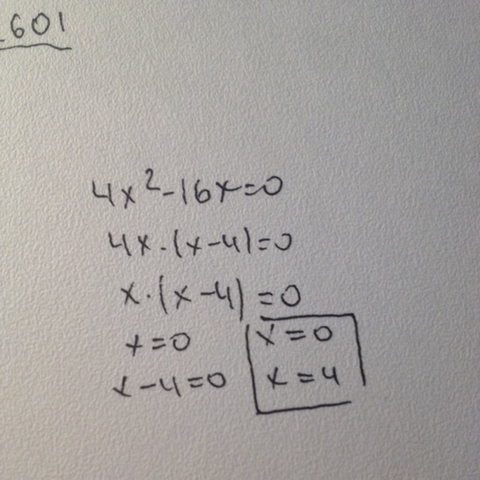 601
4x²-16x=0
4x·(x-4)=0
x·(x-4)=0
x=0
x-4=0
x=0
x=4